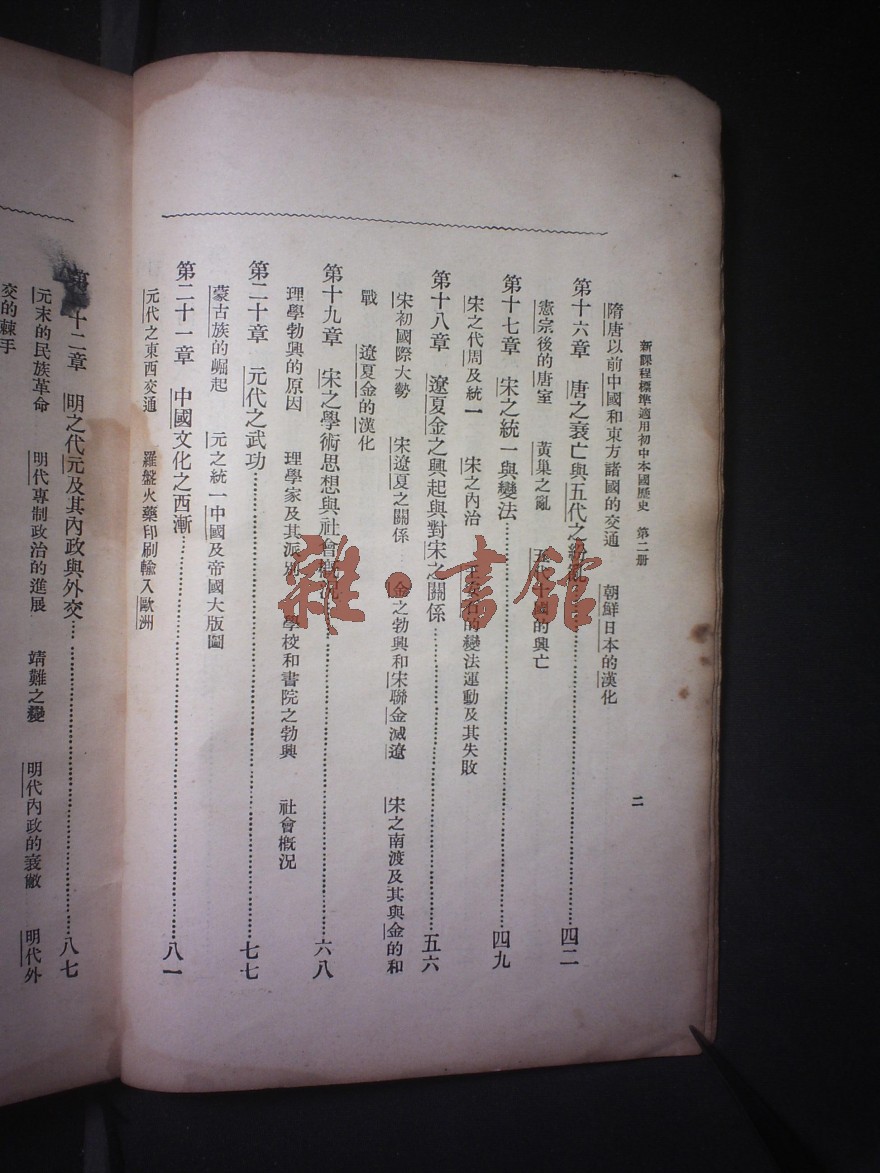 新課程標準適用初中本國歷史　第二册
二
隋唐以前中國和東方諸國的交通　朝鮮日本的漢化
第十六章　唐之衰亡與五代之紛亂……四二
憲宗後的唐室　黃巢之亂　五代十國的興亡
第十七章　宋之統一與變法……四九
宋之代周及統一　宋之內治　王安石的變法運動及其失敗
第十八章　遼夏金之興起與對宋之關係……五六
宋初國際大勢　宋遼夏之關係　金之勃興和宋聯金滅遼　宋之南渡及其與金的和
戰　遼夏金的漢化
第十九章　宋之學術思想與社會概況……六八
理學勃興的原因　理學家及其派別　學校和書院之勃興　社會概況
第二十章　元代之武功……七七
蒙古族的崛起　元之統一中國及帝國大版圖
第二十一章　中國文化之西漸……八一
元代之東西交通　羅盤火藥印刷輸入歐洲
第 十二章　明之代元及其內政與外交……八七
元末的民族革命　明代專制政治的進展　靖難之變　明代內政的衰敝　明代外
交的棘手
雜·書館